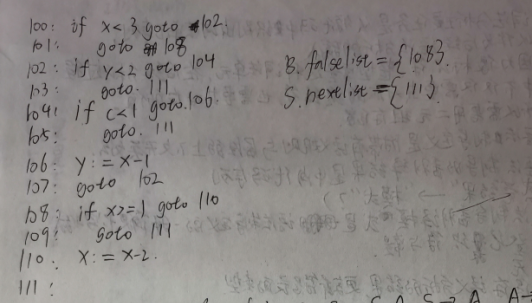 100: if x<3 goto 102
101: goto 108
102: if y<2 goto 104
103: goto 111
104: if c<1 goto 106
105: goto 111
106: y:=x-1
107: goto 102
108: if x>=1 goto 110
109: goto 111
110: x:=x-2.
111:
B.falselist={108}.
S.nextlist={111}